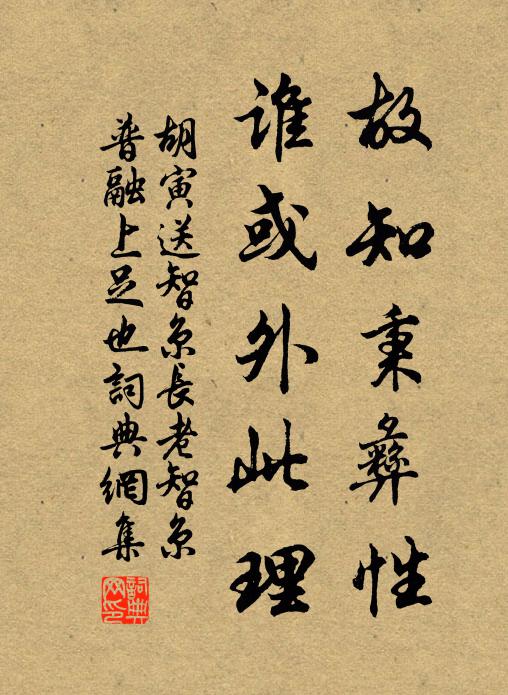 故知秉彝性
谁或外此理
胡寅送智京長老智京
普融上足也詞典網集
詞典网印